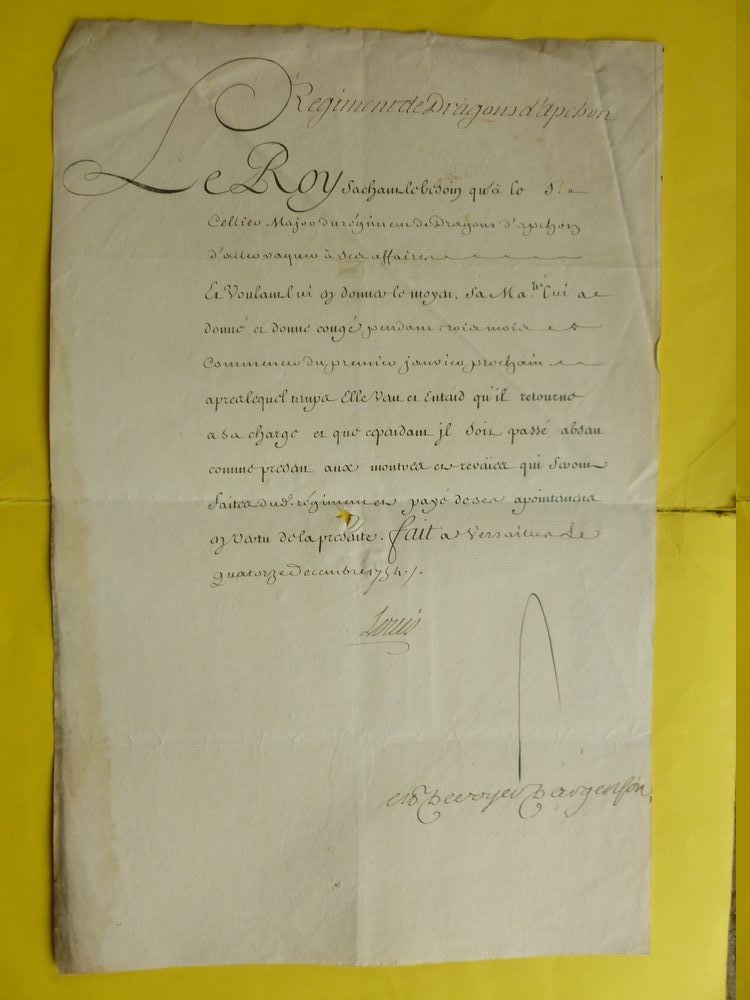 Regiment de Dragons d'apchon
Le Roy Sachant le besoin qu'à le S.r
Cellier Major du régiment de Dragons d'apchon
d'aller vaquer à Ses affaires
Et Voulant lui en donner le moyen, Sa Ma.té lui a
donné et donne congé pendant trois mois
Commencer du premier janvier prochain
apres lequel temps Elle Veut et Entend qu'il retourne
a Sa charge et que cependant jl Soit passé absent
comme present aux montres et reveües qui Seront
faites dud. régiment et payé de Ses apointemens
en Vertu de la presente. fait a Versailles Le
quatorze Decembre 1754./.
Louis
M De voyer D'argenson